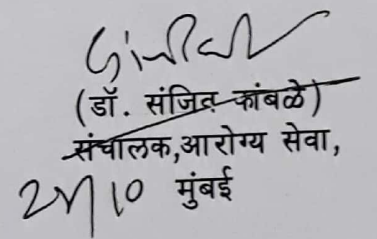 (डॉ. संजित कांबळे)
संचालक,आरोग्य सेवा,
मुंबई